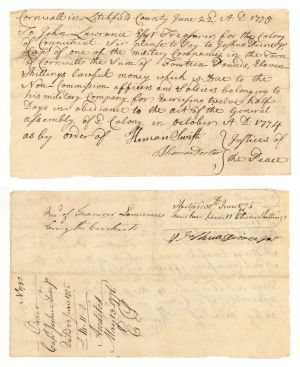 Cornwall in Litchfield County June 22d A.D. 1775
To John Lawrance Esqr Treasurer for the Colony
of Connecticut Sir please to Pay to Joshua Peirce Jr
Capt of one of the military Companies in the Town
of Cornwall the Sum of Fourteen Pounds, Eleven
Shillings Lawful money which is Due to the
Non-Commission officers and Soldiers belonging to
his military Company for Exercise twelve half
Days in obediance to the act of the General
assembly of sd Colony in october A.D. 1774
as by order of Heman Swift
Thomas Porter
Justices of
the Peace
Recd of Treasuror Lawrance
being the Contents
Hartford June 1775
fourteen pounds & Eleven Shillings
Joshua Peirce Jr
Order
Capt Joshua
1775
Audited
1776